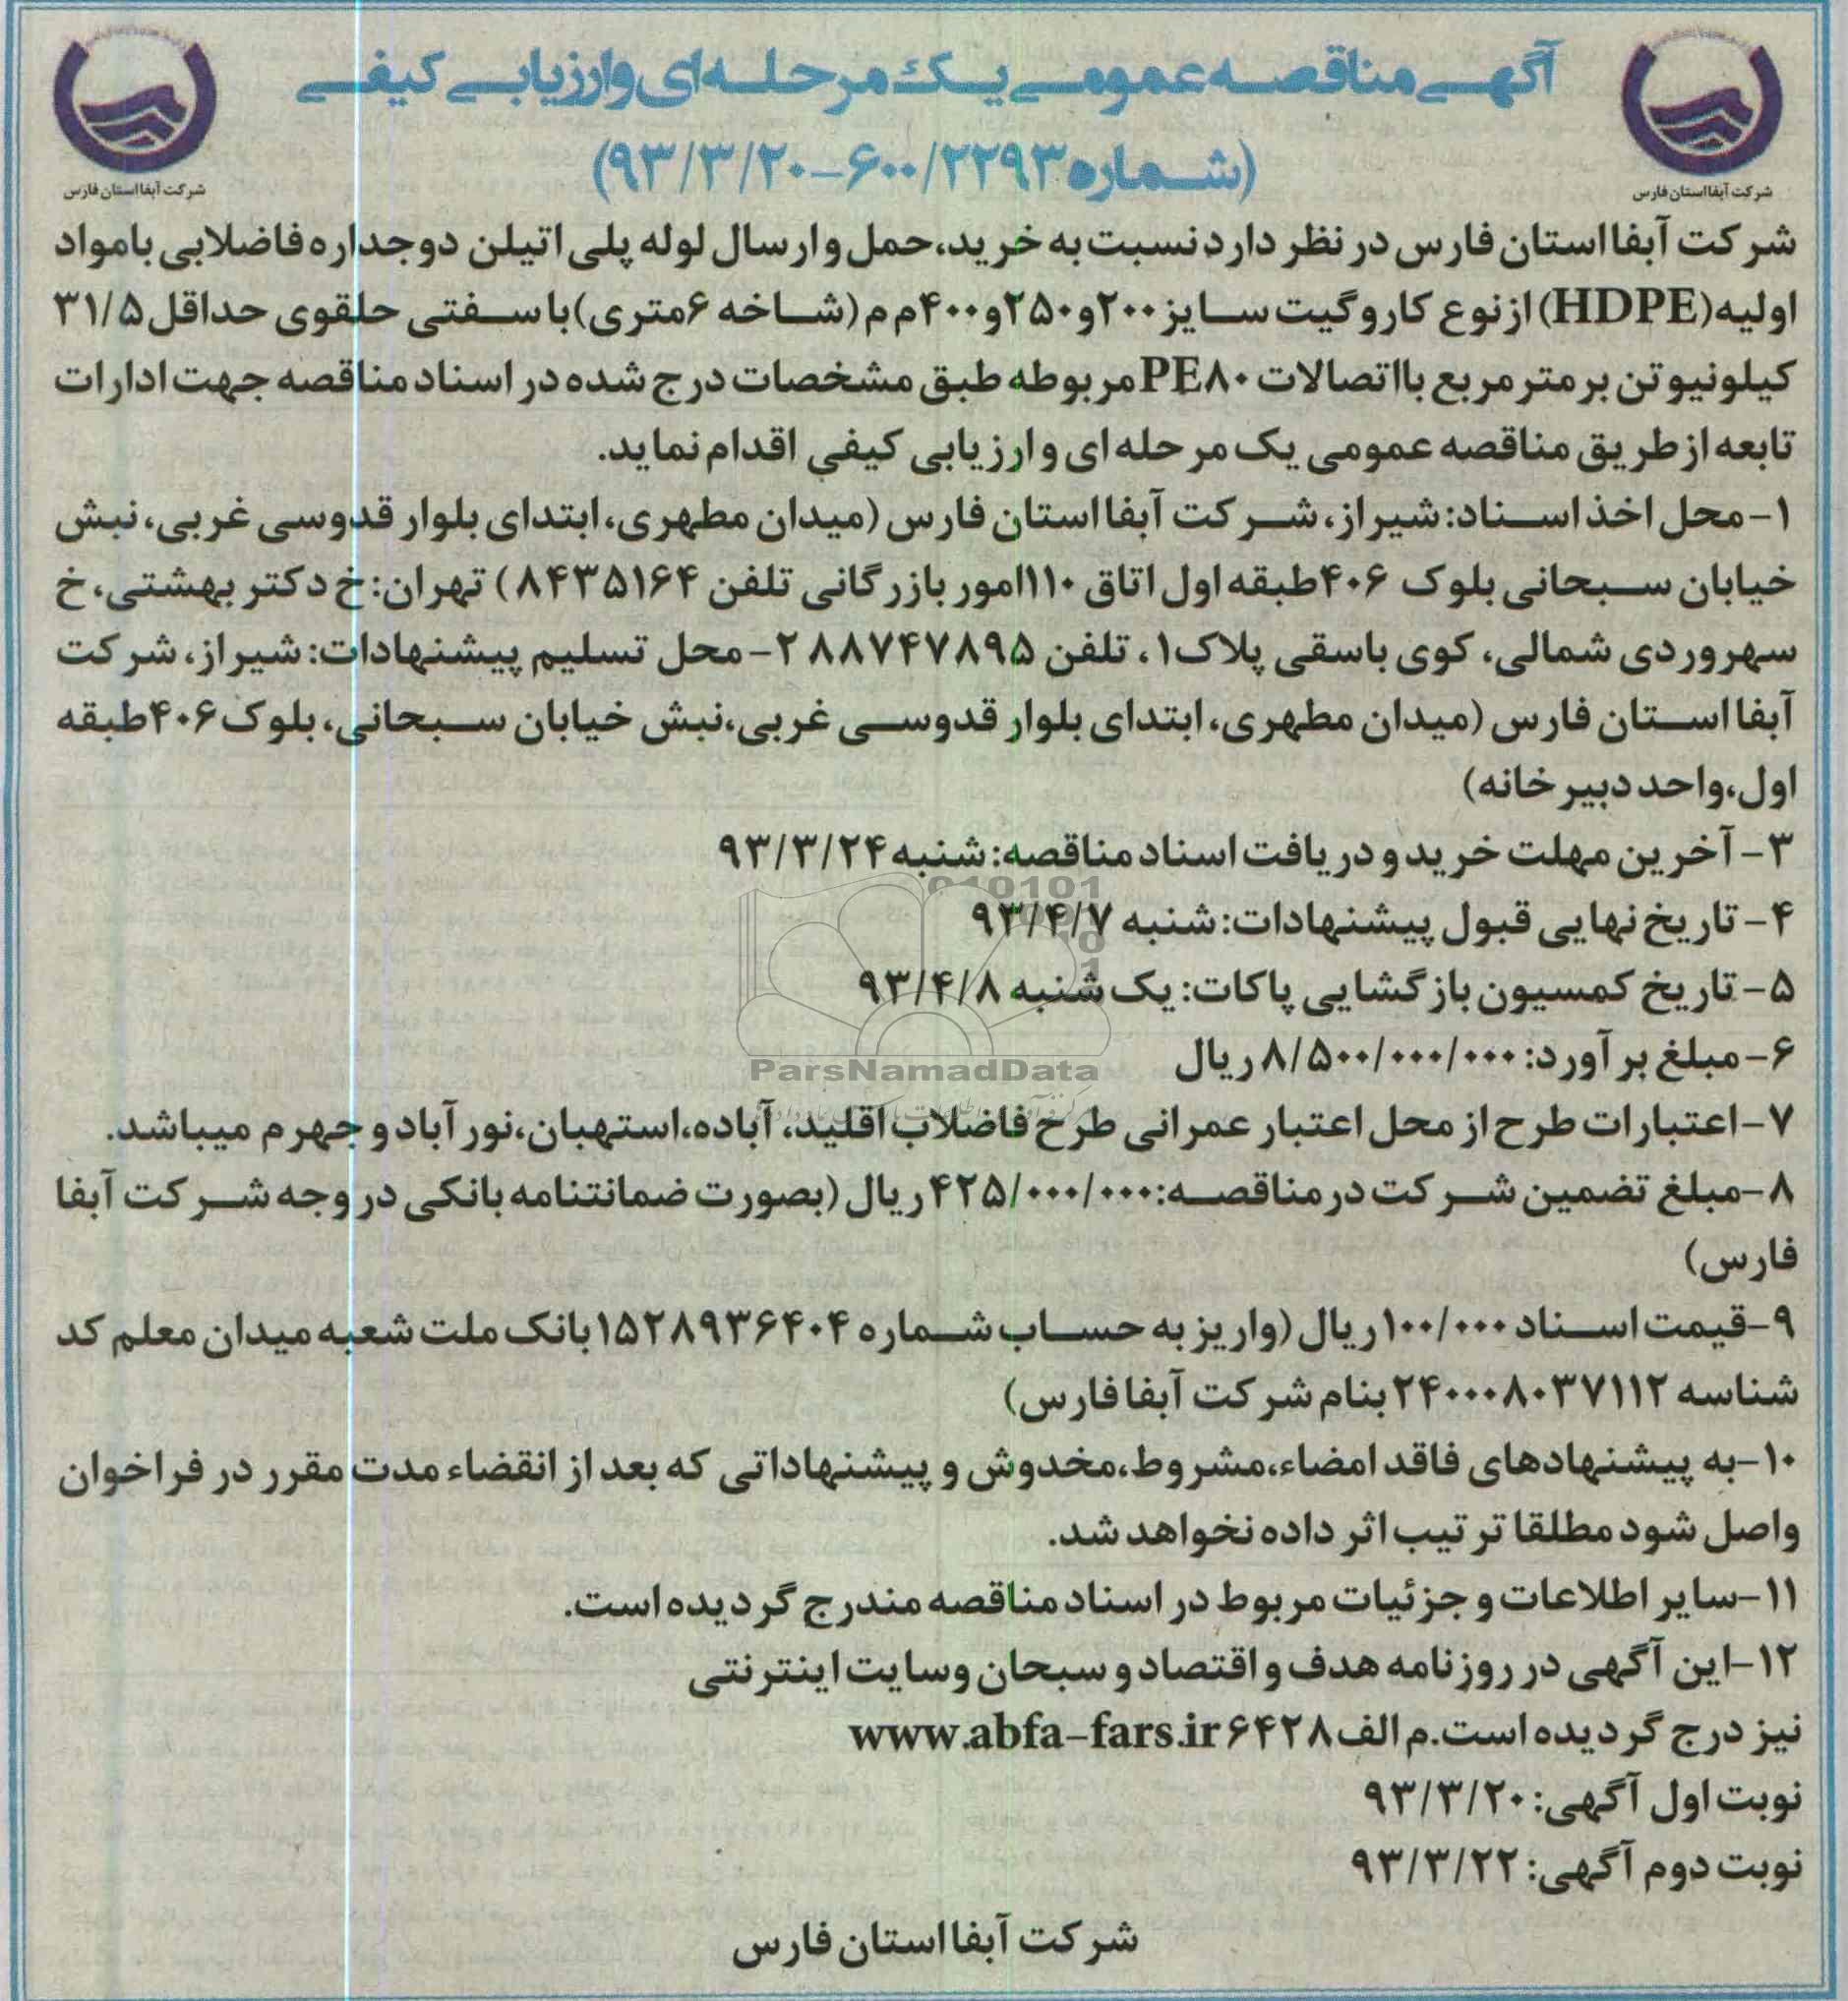 آگهی مناقصه عمومی یک مرحله‌ای وارزیابی کیفی
(شماره ۶۰۰/۲۲۹۳-۹۳/۳/۲۰)
شرکت آبفا استان فارس
شرکت آبفا استان فارس
شرکت آبفا استان فارس در نظر دارد نسبت به خرید، حمل و ارسال لوله پلی اتیلن دوجداره فاضلابی بامواد
اولیه (HDPE) از نوع کاروگیت سایز ۲۰۰و۲۵۰و۴۰۰م م (شاخه ۶متری) با سفتی حلقوی حداقل ۳۱/۵
کیلونیوتن بر متر مربع با اتصالات PE۸۰ مربوطه طبق مشخصات درج شده در اسناد مناقصه جهت ادارات
تابعه از طریق مناقصه عمومی یک مرحله ای وارزیابی کیفی اقدام نماید.
۱- محل اخذ اسناد: شیراز، شرکت آبفا استان فارس (میدان مطهری، ابتدای بلوار قدوسی غربی، نبش
خیابان سبحانی بلوک ۴۰۶طبقه اول اتاق ۱۱۰امور بازرگانی تلفن ۸۴۳۵۱۶۴) تهران: خ دکتر بهشتی، خ
سهروردی شمالی، کوی باسقی پلاک۱، تلفن ۸۸۷۴۷۸۹۵ ۲- محل تسلیم پیشنهادات: شیراز، شرکت
آبفا استان فارس (میدان مطهری، ابتدای بلوار قدوسی غربی،نبش خیابان سبحانی، بلوک ۴۰۶طبقه
اول،واحد دبیرخانه)
۳- آخرین مهلت خرید و دریافت اسناد مناقصه: شنبه ۹۳/۳/۲۴
۴- تاریخ نهایی قبول پیشنهادات: شنبه ۹۳/۴/۷
۵- تاریخ کمسیون بازگشایی پاکات: یک شنبه ۹۳/۴/۸
۶- مبلغ برآورد: ۸/۵۰۰/۰۰۰/۰۰۰ ریال
ParsNamadData
۷- اعتبارات طرح از محل اعتبار عمرانی طرح فاضلاب اقلید، آباده،استهبان،نورآباد و جهرم میباشد.
۸-مبلغ تضمین شرکت در مناقصه:۴۲۵/۰۰۰/۰۰۰ ریال (بصورت ضمانتنامه بانکی در وجه شرکت آبفا
فارس)
۹-قیمت اسناد ۱۰۰/۰۰۰ریال (واریز به حساب شماره ۱۵۲۸۹۳۶۴۰۴بانک ملت شعبه میدان معلم کد
شناسه ۲۴۰۰۰۸۰۳۷۱۱۲ بنام شرکت آبفا فارس)
۱۰-به پیشنهادهای فاقد امضاء،مشروط،مخدوش و پیشنهاداتی که بعد از انقضاء مدت مقرر در فراخوان
واصل شود مطلقا ترتیب اثر داده نخواهد شد.
۱۱-سایر اطلاعات و جزئیات مربوط در اسناد مناقصه مندرج گردیده است.
۱۲-این آگهی در روزنامه هدف و اقتصاد و سبحان وسایت اینترنتی
نیز درج گردیده است.م الف۶۴۲۸ www.abfa-fars.ir
نوبت اول آگهی: ۹۳/۳/۲۰
نوبت دوم آگهی: ۹۳/۳/۲۲
شرکت آبفا استان فارس